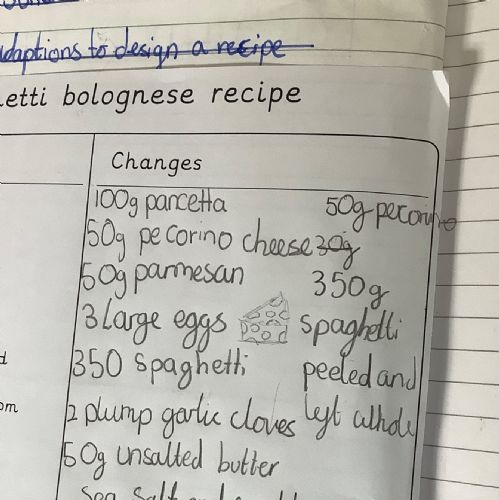 adaptions to design a recipe
etti bolognese recipe
Changes
100g pancetta 50g pecorino
50g pecorino cheese 30g
50g parmesan 350g
3 Large eggs spaghetti
350 spaghetti peeled and
2 plump garlic cloves left whole
50g unsalted butter
sea salt and